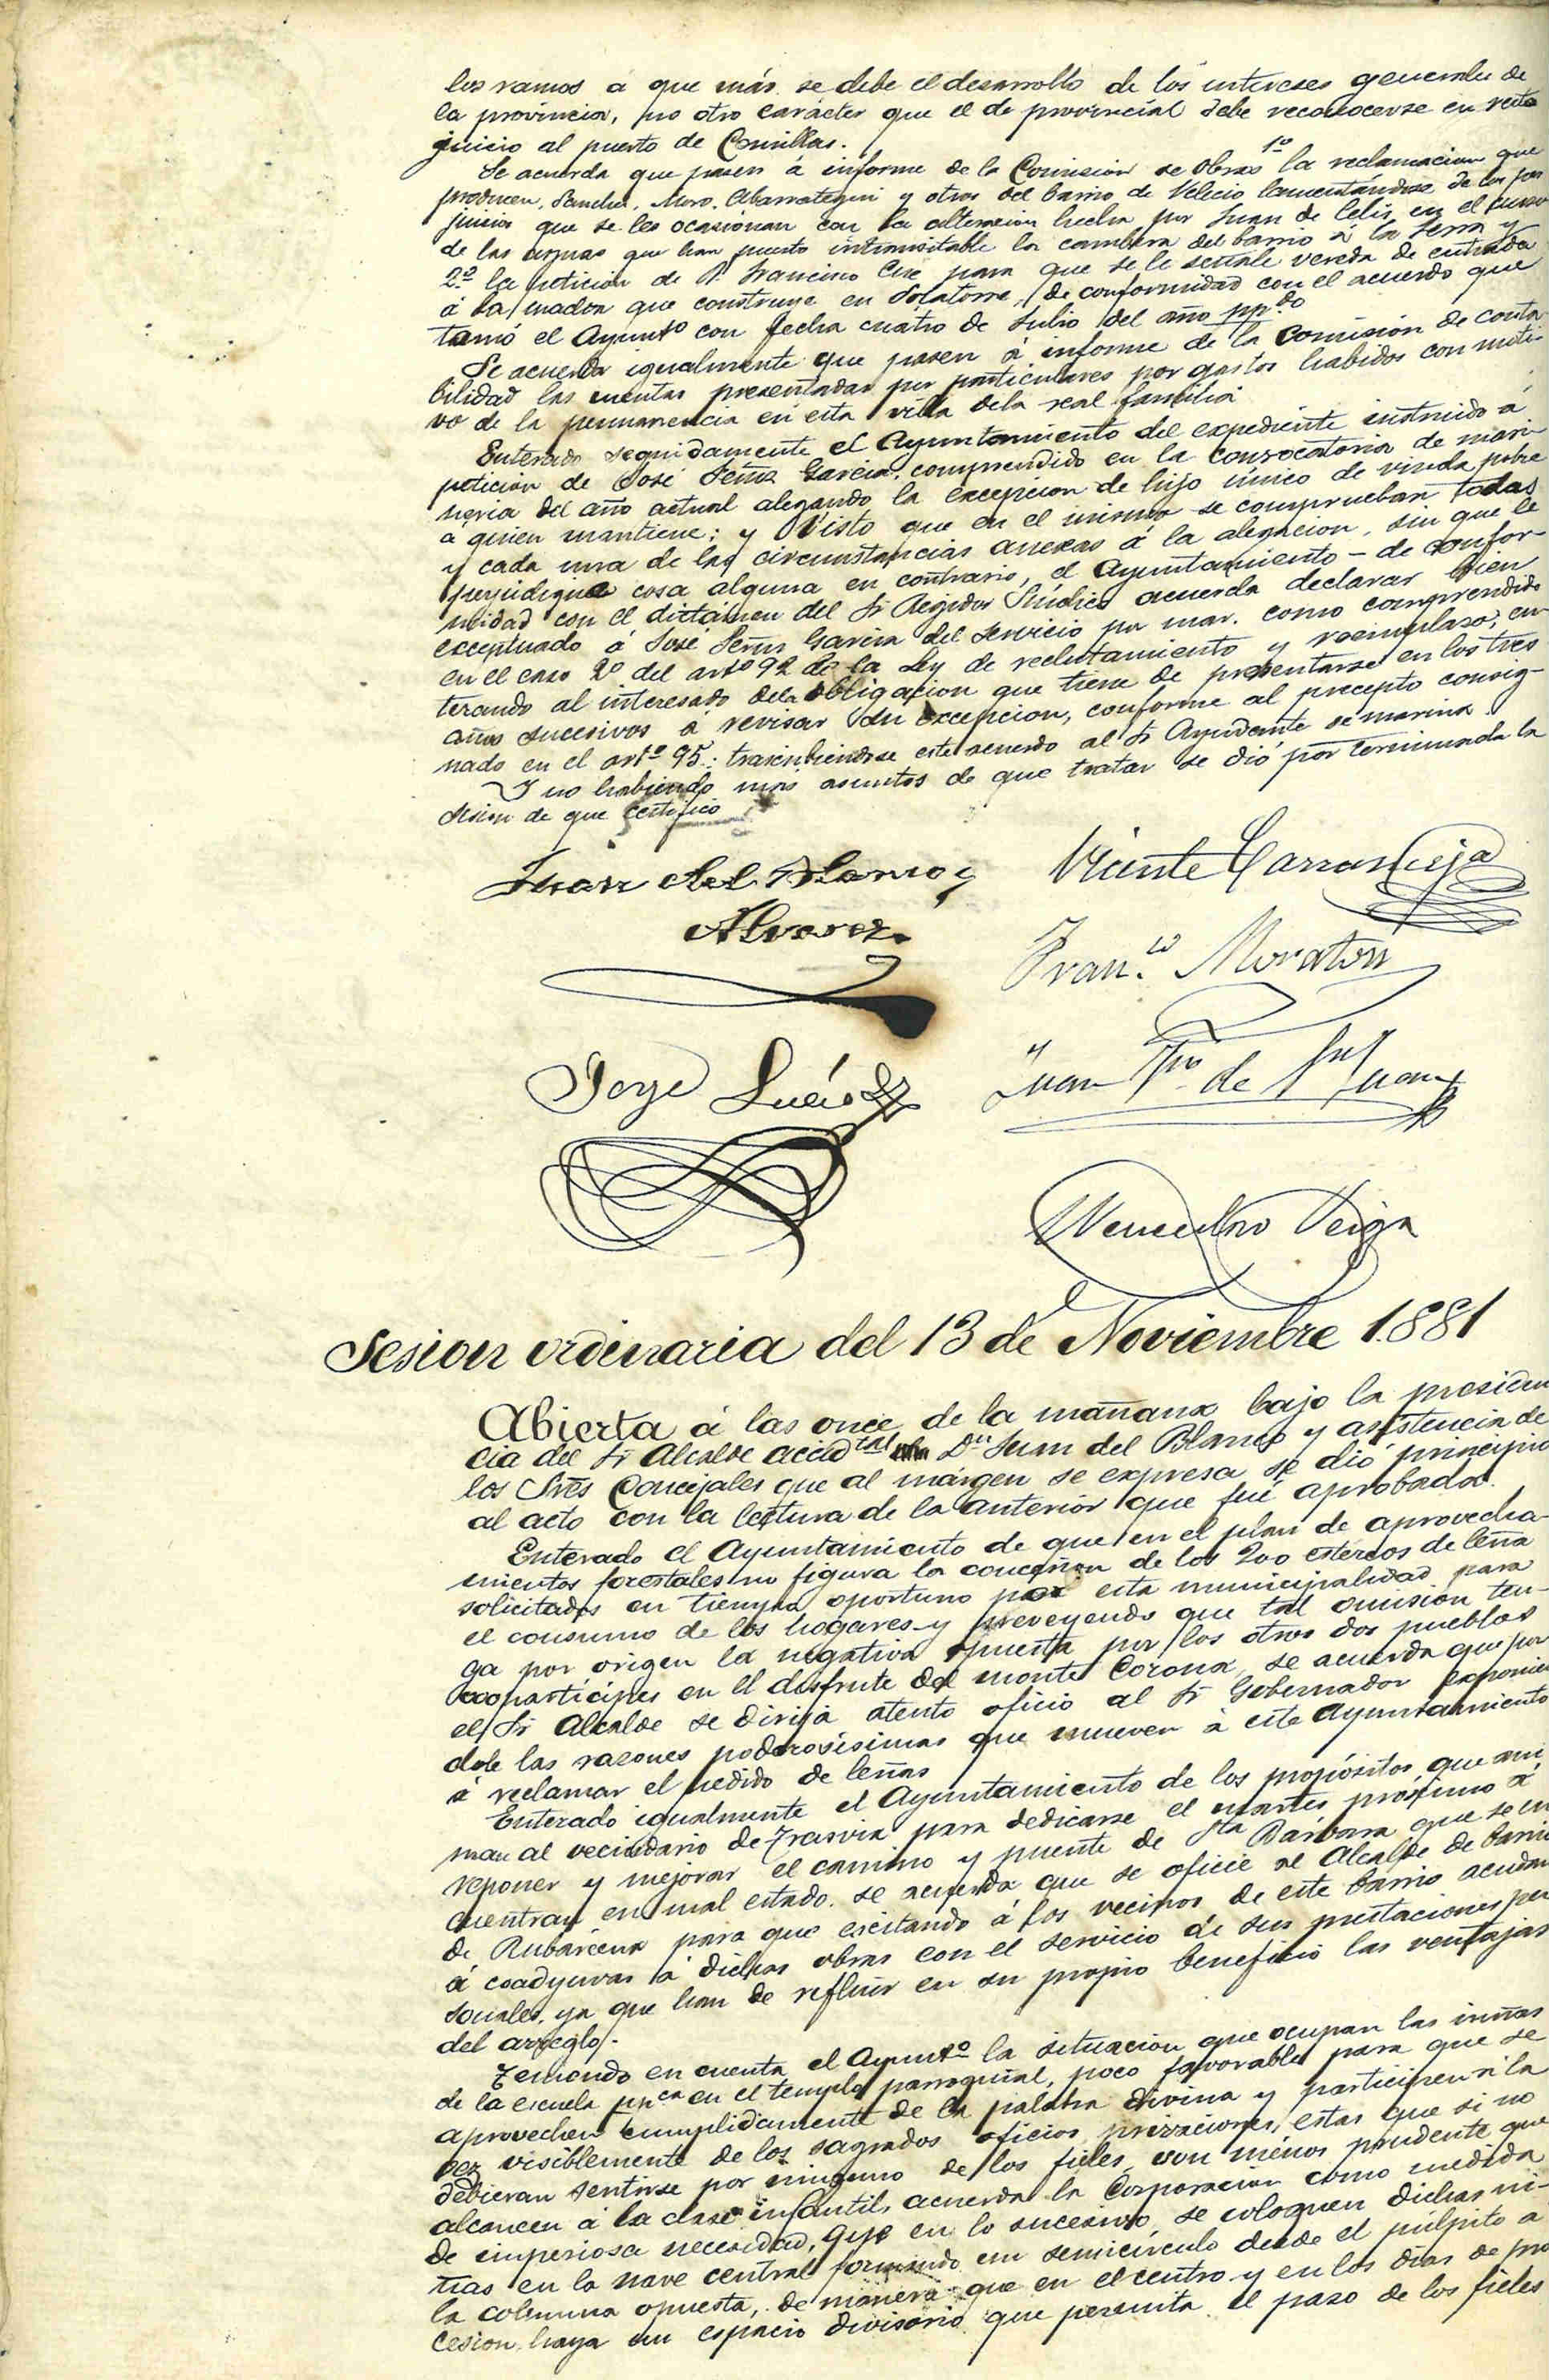 los ramos á que más se debe el desarrollo de los intereses generales de
la provincia, no otro carácter que el de provincial debe reconocerse en recto
juicio al puerto de Comillas.
Se acuerda que pasen á informe de la Comisión de Obras 1º la reclamacion que
producen, Sanchez, Moro, Abarrategui y otros del barrio de Velecio lamentándose de los per
juicios que se les ocasionan con la alteracion hecha por Juan de Celis en el curso
de las aguas que han puesto intransitable la cambera del barrio á la Serra y
2º la peticion de D. Francisco Cese para que se le señale vereda de entrada
á la que construye en Solatorre, de conformidad con el acuerdo que
tomó el Ayuntº con fecha cuatro de Julio del año pp.do
Se acuerda igualmente que pasen á informe de la Comisión de conta-
bilidad las cuentas presentadas por particulares por gastos habidos con moti-
vo de la permanencia en esta villa dela real familia
Enterado seguidamente el Ayuntamiento del expediente instruido á
peticion de José García, comprendido en la convocatoria de mari-
neria del año actual alegando la excepcion de hijo único de viuda pobre
á quien mantiene; y Visto que en el mismo se comprueban todas
y cada una de las circunstancias anexas á la alegacion, sin que le
perjudique cosa alguna en contrario, el Ayuntamiento - de confor-
midad con el dictámen del Sr Regidor Síndico acuerda declarar bien
exceptuado á José García del servicio por mar. como comprendido
en el caso 2º del artº 92 de la Ley de reclutamiento y reemplazo; en-
terando al interesado dela obligacion que tiene de presentarse en los tres
años sucesivos á revisar su excepcion, conforme al precepto consig-
nado en el artº 95: trascribiendose este acuerdo al Sr Ayudante de marina
Y no habiendo más asuntos de que tratar se dió por terminada la
sesion de que certifico
Juan del Blanco y Vicente Carranceja
Alvarez.
Fran.co Moraton
Jorge Juan Fco de San Juan
Wenceslao Veiga
Sesion ordinaria del 13 de Noviembre 1.881
Abierta á las once de la mañana bajo la presiden
cia del Sr Alcalde accidtal Dn Juan del Blanco y asistencia de
los Sres Concejales que al márgen se expresa se dió principio
al acto con la lectura de la anterior que fué aprobada.
Enterado el Ayuntamiento de que en el plan de aprovecha-
mientos forestales no figura la concesion de los 200 estereos de leña
solicitados en tiempo oportuno por esta municipalidad para
el consumo de los hogares y preveyendo que tal omision ten-
ga por origen la negativa opuesta por los otros dos pueblos
copartícipes en el disfrute del monte Corona, se acuerda que por
el Sr Alcalde se dirija atento oficio al Sr Gobernador exponien
dole las razones poderosísimas que mueven á este Ayuntamiento
á reclamar el pedido de leñas
Enterado igualmente el Ayuntamiento de los propósitos que ani
man al vecindario de Trasvia para dedicarse el martes próximo á
reponer y mejorar el camino y puente de Sta Bárbara que se en
cuentran en mal estado. se acuerda que se oficie al Alcalde de barrio
de Rubárcena para que escitando á los vecinos de este barrio acudan
á coadyuvar á dichas obras con el servicio de sus prestaciones per
sonales, ya que han de refluir en su propio beneficio las ventajas
del arreglo.
Teniendo en cuenta el Ayuntº la situacion que ocupan las niñas
de la escuela pbca en el templo parroquial, poco favorable para que se
aprovechen cumplidamente de la palabra divina y participen á la
vez visiblemente de los sagrados oficios, privaciones, estas que si no
debieran sentirse por ninguno de los fieles son ménos prudente que
alcancen á la clase infantil, acuerda la Corporacion como medida
de imperiosa necesidad, que en lo sucesivo se coloquen dichas ni-
ñas en la nave central formando un semicírculo desde el púlpito á
la columna opuesta, de manera que en el centro y en los dias de pro
cesion haya un espacio divisorio que permita el paso de los fieles